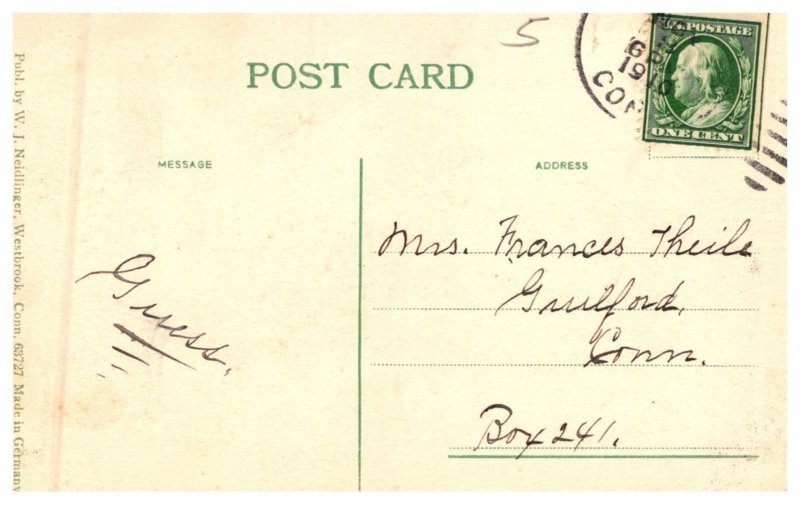 5
POST CARD
1910
CON
U.S. POSTAGE
ONE CENT
MESSAGE
ADDRESS
Guess.
Mrs. Frances Theile
Guilford,
Conn.
Box 241.
Publ. by W. J. Neidlinger, Westbrook, Conn. 63727 Made in Germany